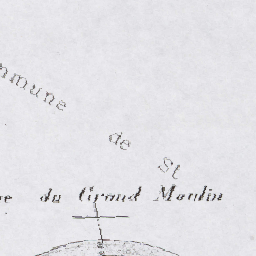 mmune de St
du Grand Moulin